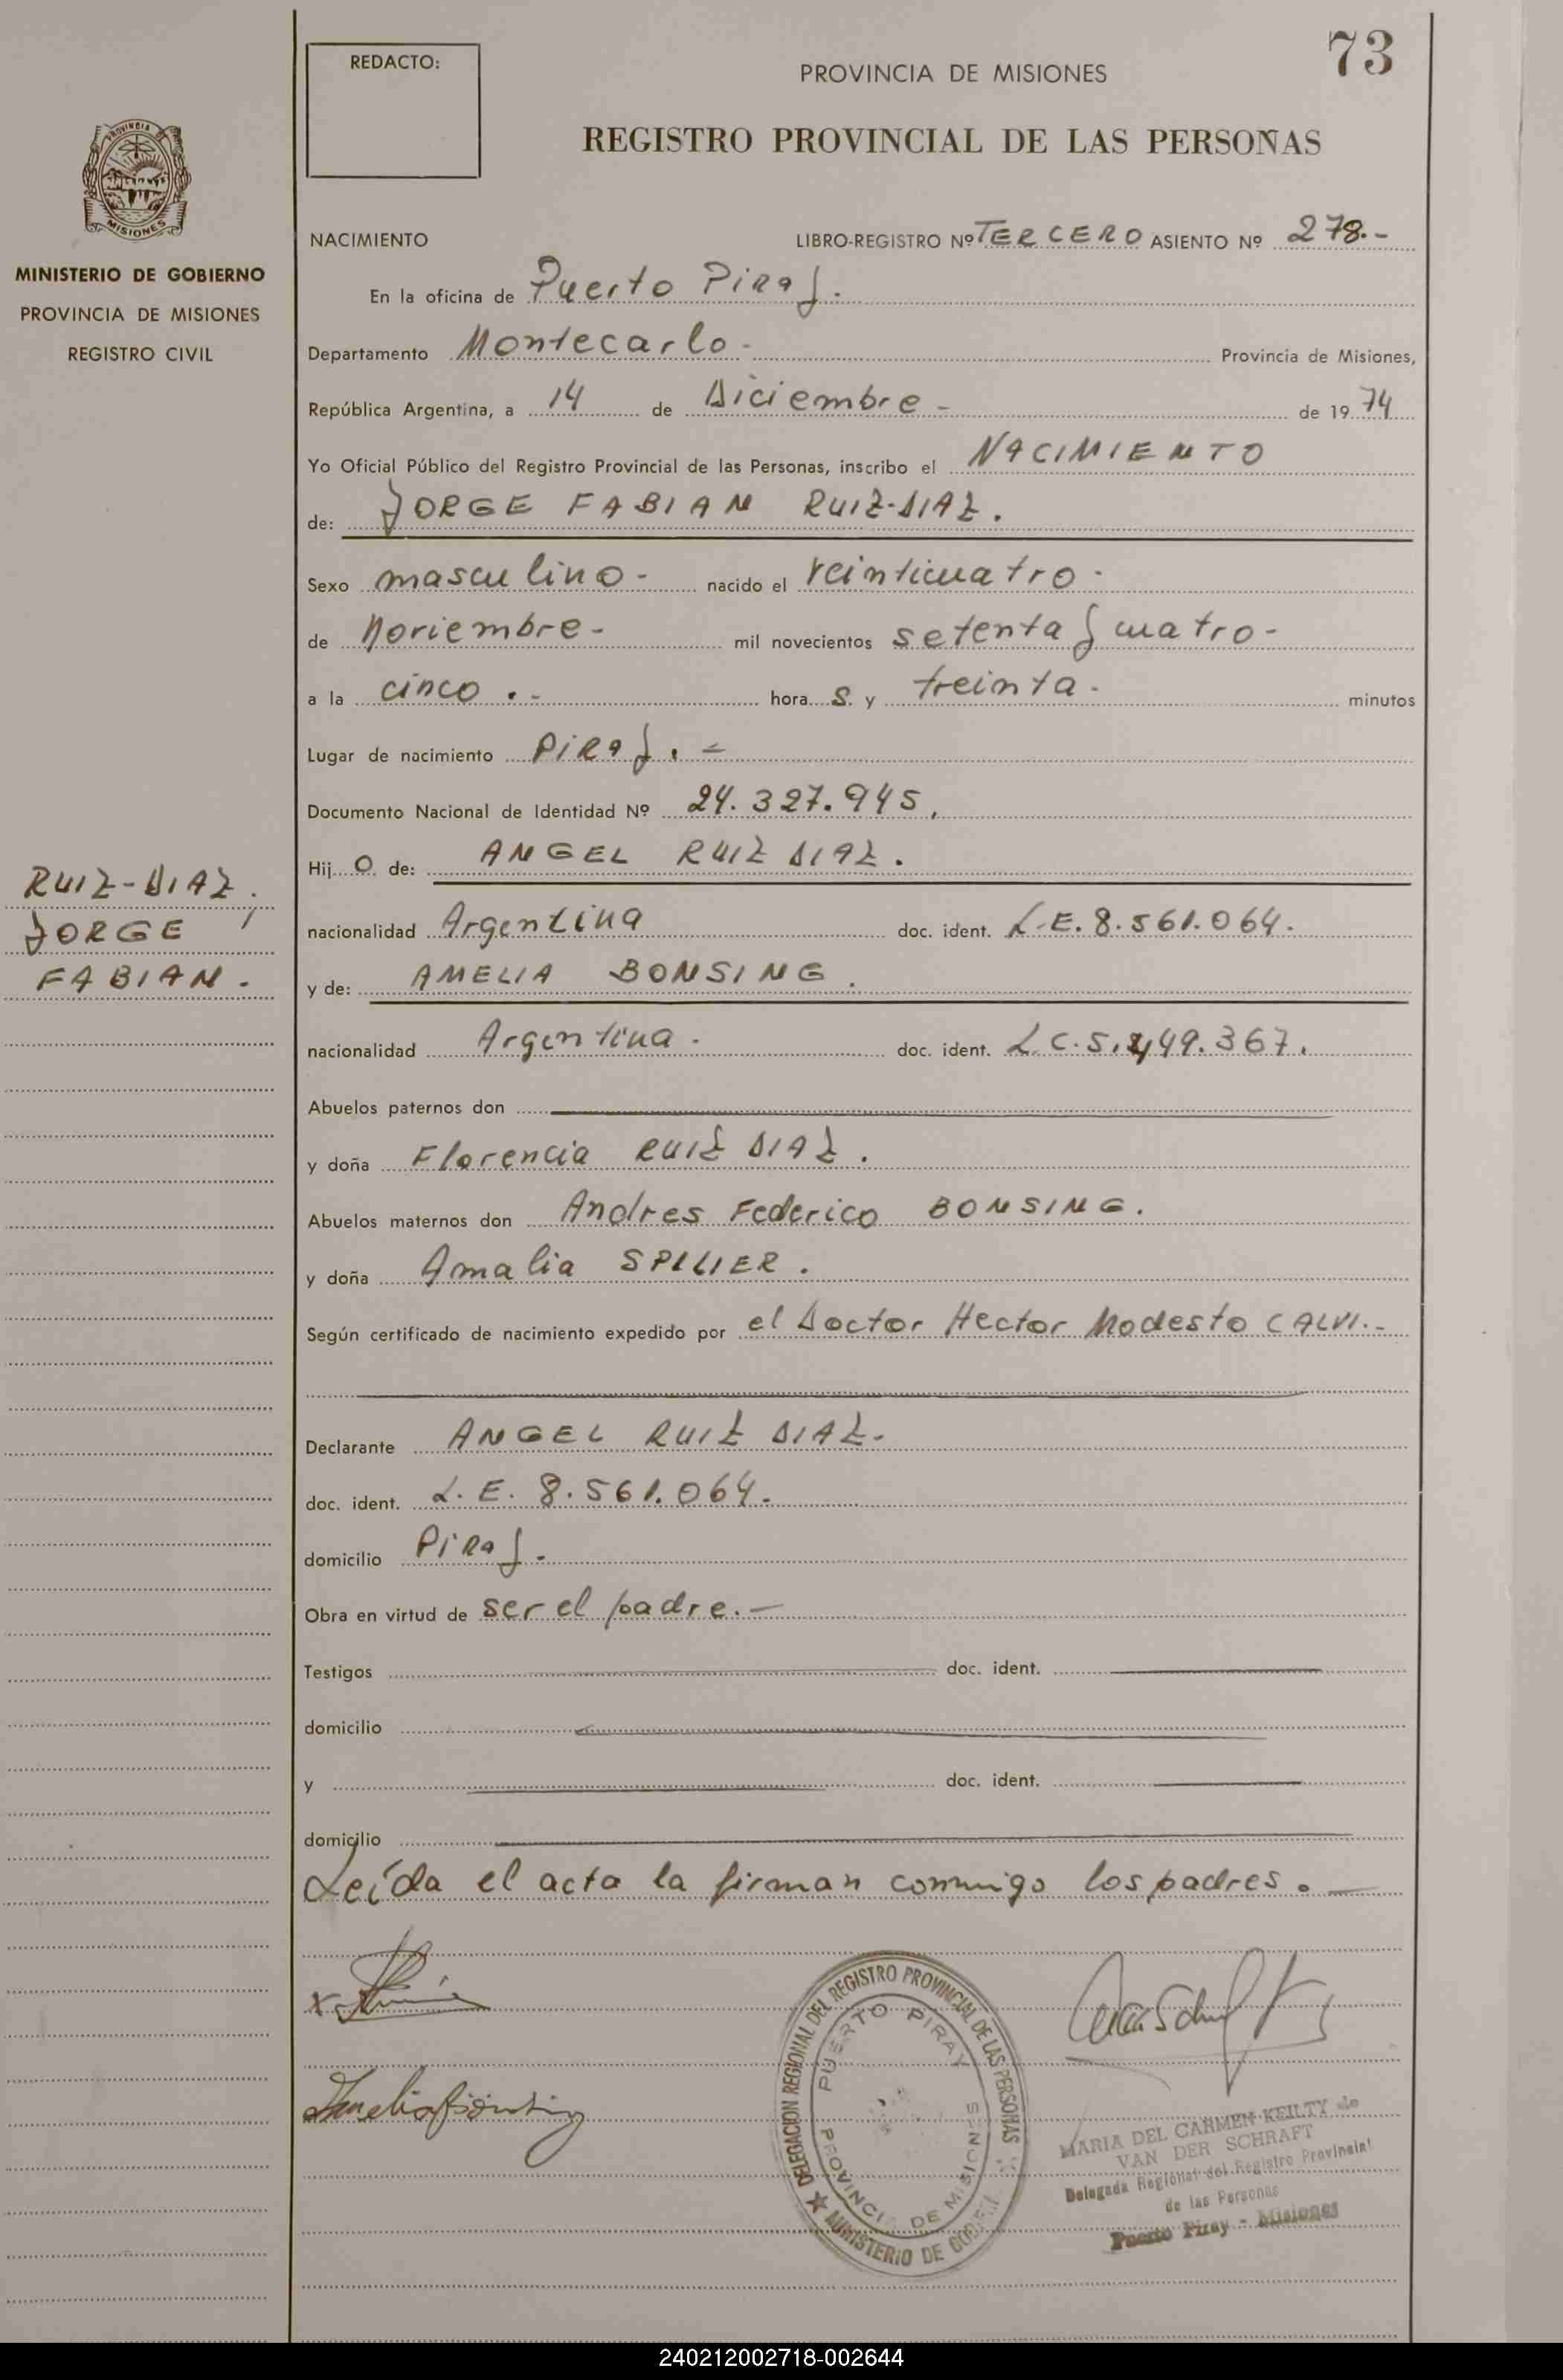 73
REDACTO:
PROVINCIA DE MISIONES
REGISTRO PROVINCIAL DE LAS PERSONAS
PROVINCIA DE
MISIONES
MINISTERIO DE GOBIERNO
PROVINCIA DE MISIONES
REGISTRO CIVIL
NACIMIENTO LIBRO-REGISTRO Nº TERCERO ASIENTO Nº 278.-
En la oficina de Puerto Piray.
Departamento Montecarlo - Provincia de Misiones,
República Argentina, a 14 de Diciembre - de 1974
Yo Oficial Público del Registro Provincial de las Personas, inscribo el NACIMIENTO
de: JORGE FABIAN RUIZ-DIAZ.
Sexo masculino- nacido el veinticuatro-
de Noviembre- mil novecientos setenta y cuatro-
a la cinco.- hora s y treinta- minutos
Lugar de nacimiento PIRAY.=
Documento Nacional de Identidad Nº 24.327.945,
Hij o de: ANGEL RUIZ DIAZ.
RUIZ-DIAZ.
JORGE
FABIAN.
nacionalidad Argentina doc. ident. L.E. 8.561.064.
y de: AMELIA BONSING.
nacionalidad Argentina. doc. ident. L.C. 449.367.
Abuelos paternos don
y doña Florencia RUIZ DIAZ.
Abuelos maternos don Andres Federico BONSING.
y doña Amalia
Según certificado de nacimiento expedido por el Doctor Hector Modesto CALVI.-
Declarante ANGEL RUIZ DIAZ-
doc. ident. L.E. 8.561.064.
domicilio Piray.
Obra en virtud de ser el padre.-
Testigos doc. ident.
domicilio
y doc. ident.
domicilio
Leída el acta la firman conmigo los padres.
DELEGACION REGIONAL DEL REGISTRO PROVINCIAL DE LAS PERSONAS
MINISTERIO DE
PUERTO PIRAY
PROVINCIA DE MISIONES
MARIA DEL CARMEN KEILTY de
VAN DER SCHRAFT
Delegada Regional del Registro Provincial
de las Personas
Puerto Piray - Misiones
240212002718-002644